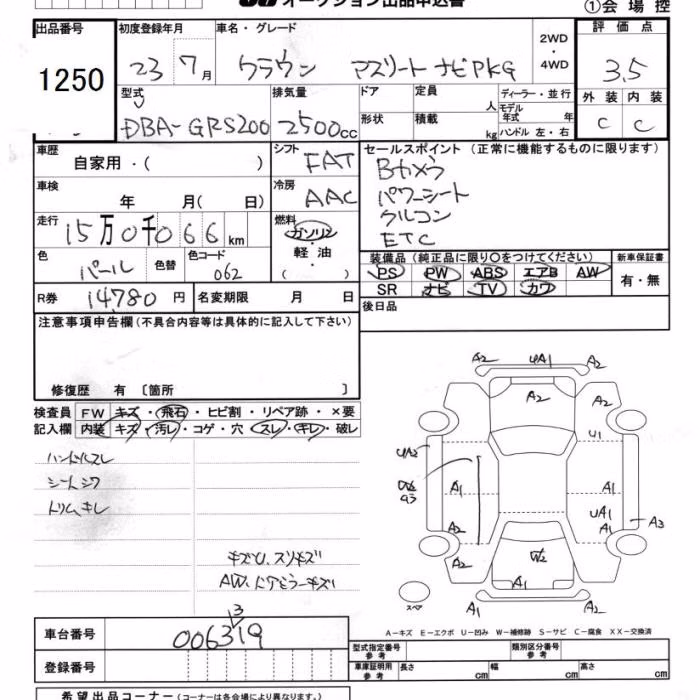 オークション出品申込書
①会場控
出品番号 初度登録年月 車名・グレード 2WD ・ 4WD 評価点
1250 23 7月 クラウン アスリート ナビPKG 3.5
型式 排気量 ドア 定員 人 ディーラー・並行 外装 内装
DBA-GRS200 2500cc 形状 積載 kg モデル年式 年 C C
ハンドル 左・右
車歴 自家用・( ) シフト FAT セールスポイント (正常に機能するものに限ります)
Bカメラ
車検 年 月( 日) 冷房 AAC パワーシート
クルコン
走行 15万0千066km 燃料 ガソリン・軽油・( ) ETC
色 パール 色替 色コード 062 装備品 (純正品に限り○をつけてください) 新車保証書
PS PW ABS エアB AW 有・無
R券 14,780円 名変期限 月 日 SR ナビ TV カワ
注意事項申告欄(不具合内容等は具体的に記入して下さい) 後日品
修復歴 有 〔箇所 〕
検査員 FW キズ・飛石・ヒビ割・リペア跡・×要
記入欄 内装 キズ・汚レ・コゲ・穴・スレ・キレ・破レ
ハンドルスレ
シートシワ
トリム、キレ
キズU、スリキズ
AW、ドアミラーキズ
A2 UA1 A2
A2 A2
A2
U1
UA2
W2
A3
A1 A1
UA1
A2 A1 A3
W2
A2 A2
A1 A1
スペア
A-キズ E-エクボ U-凹み W-補修跡 S-サビ C-腐食 XX-交換済
車台番号 006319
3
型式指定番号 参考 類別区分番号 参考
登録番号 車庫証明用 参考 長さ cm 幅 cm 高さ cm
希望出品コーナー(コーナーは各会場により異なります。)